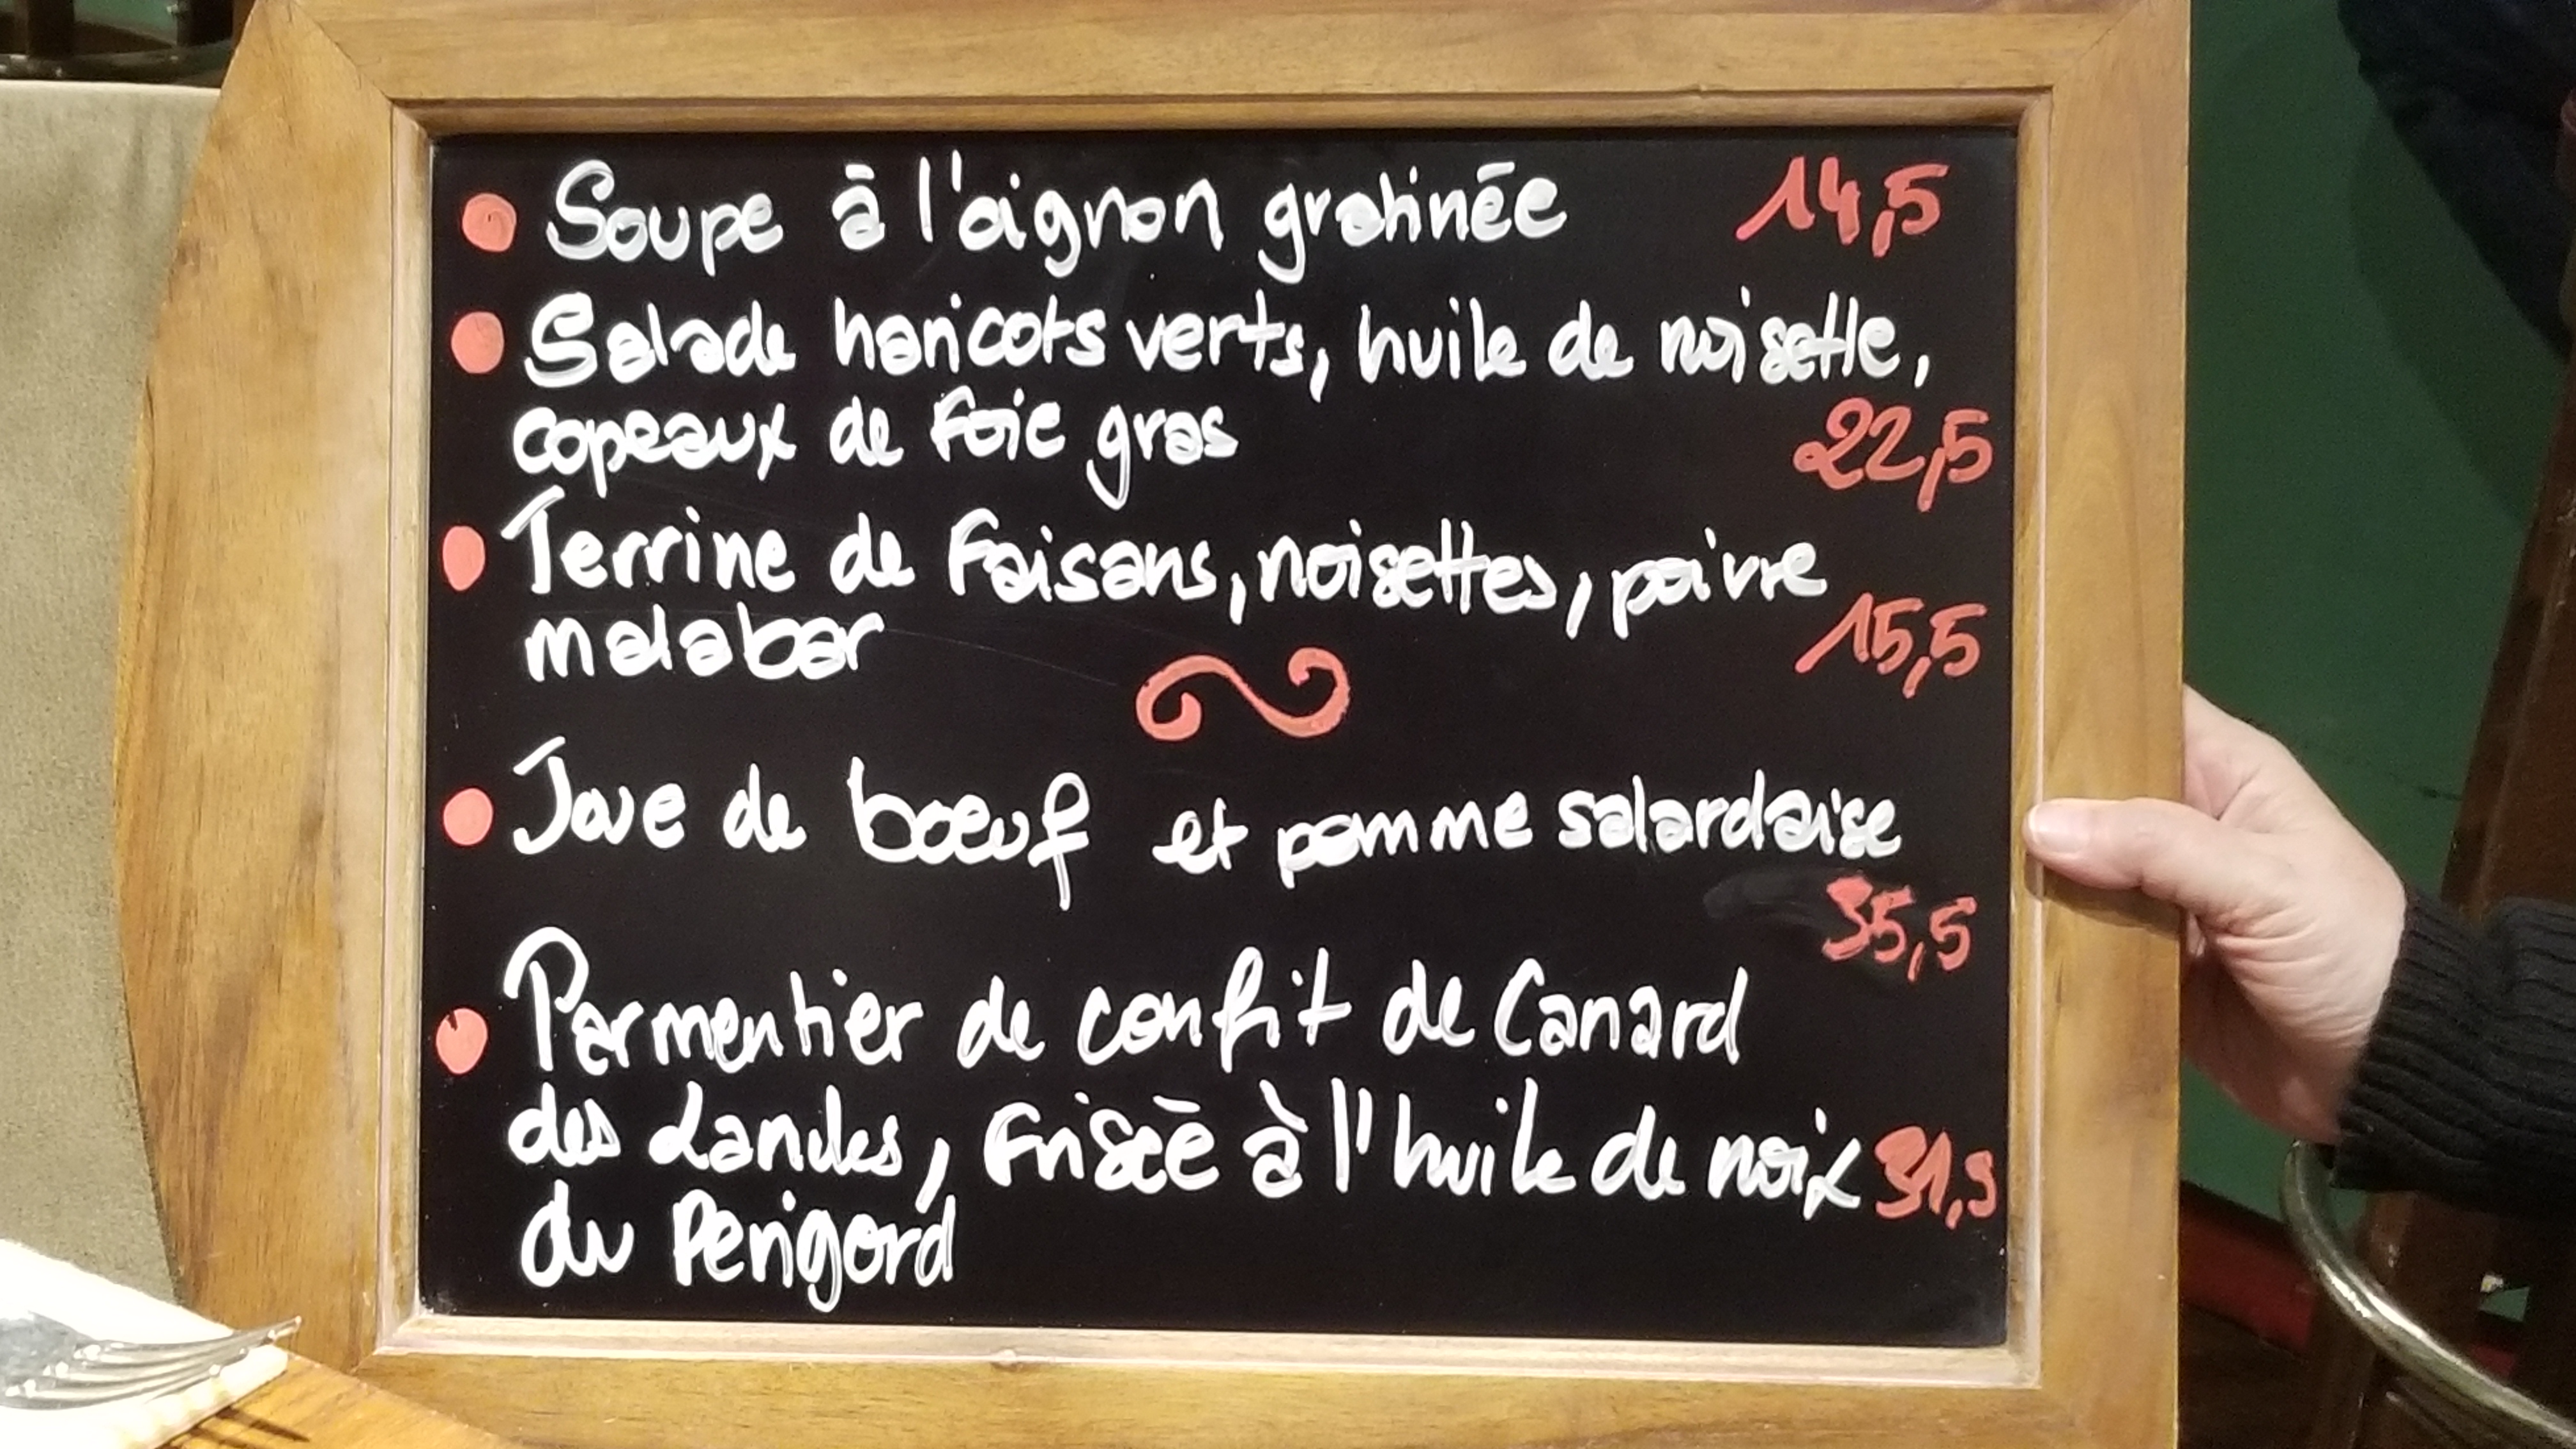 Soupe à l'oignon gratinée 14,5
Salade haricots verts, huile de noisette,
copeaux de foie gras 22,5
Terrine de Faisans, noisettes, poivre
malabar 15,5
Joue de bœuf et pomme salardaise
35,5
Parmentier de confit de Canard
des Landes, Frisée à l'huile de noix 31,5
du Perigord